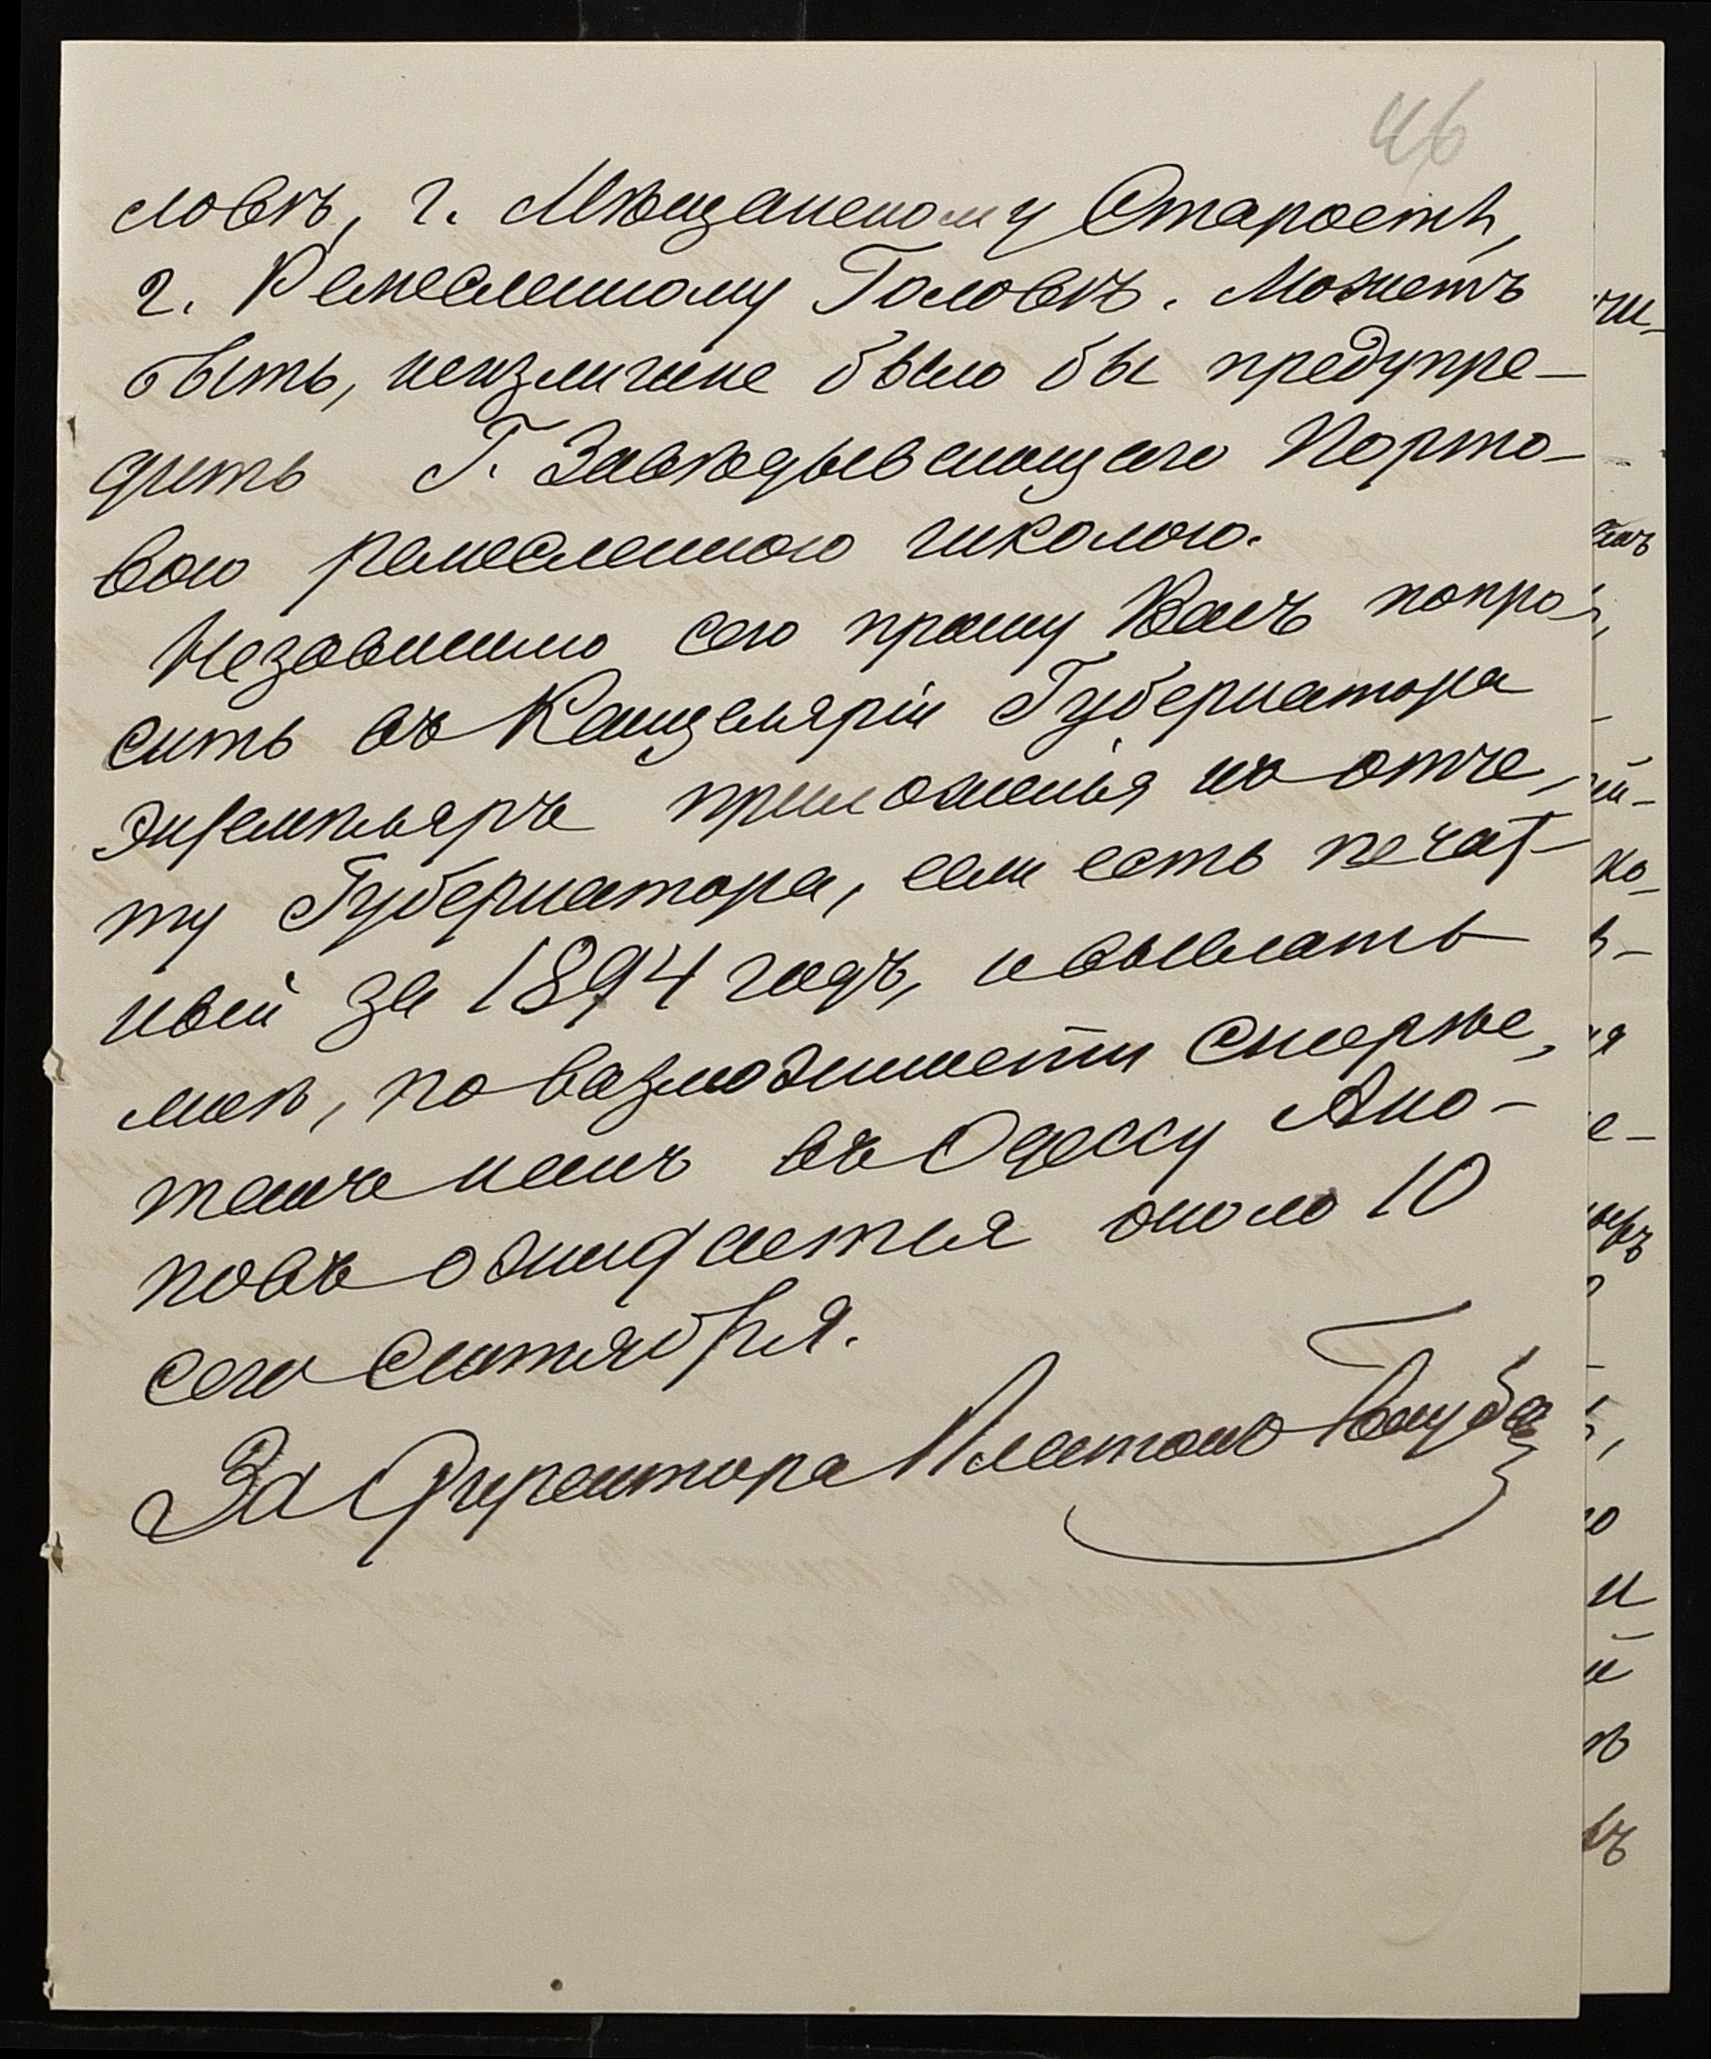 46
ловѣ, г. Мѣщанскому Старостѣ,
г. Ремесленному Головѣ. Можетъ
быть, неизлишне было бы предупре-
дить Г. Завѣдывающаго Порто-
вою ремесленною школою.
Независимо сего прошу Васъ попро-
сить въ Канцеляріи Губернатора
экземпляръ приложенія къ отче-
ту Губернатора, если есть печат-
ный за 1894 годъ, и выслать
мнѣ, по возможности скорѣе,
также намъ въ Одессу. Ано-
повъ ожидается около 10
сего Сентября.
За Директора Платонъ